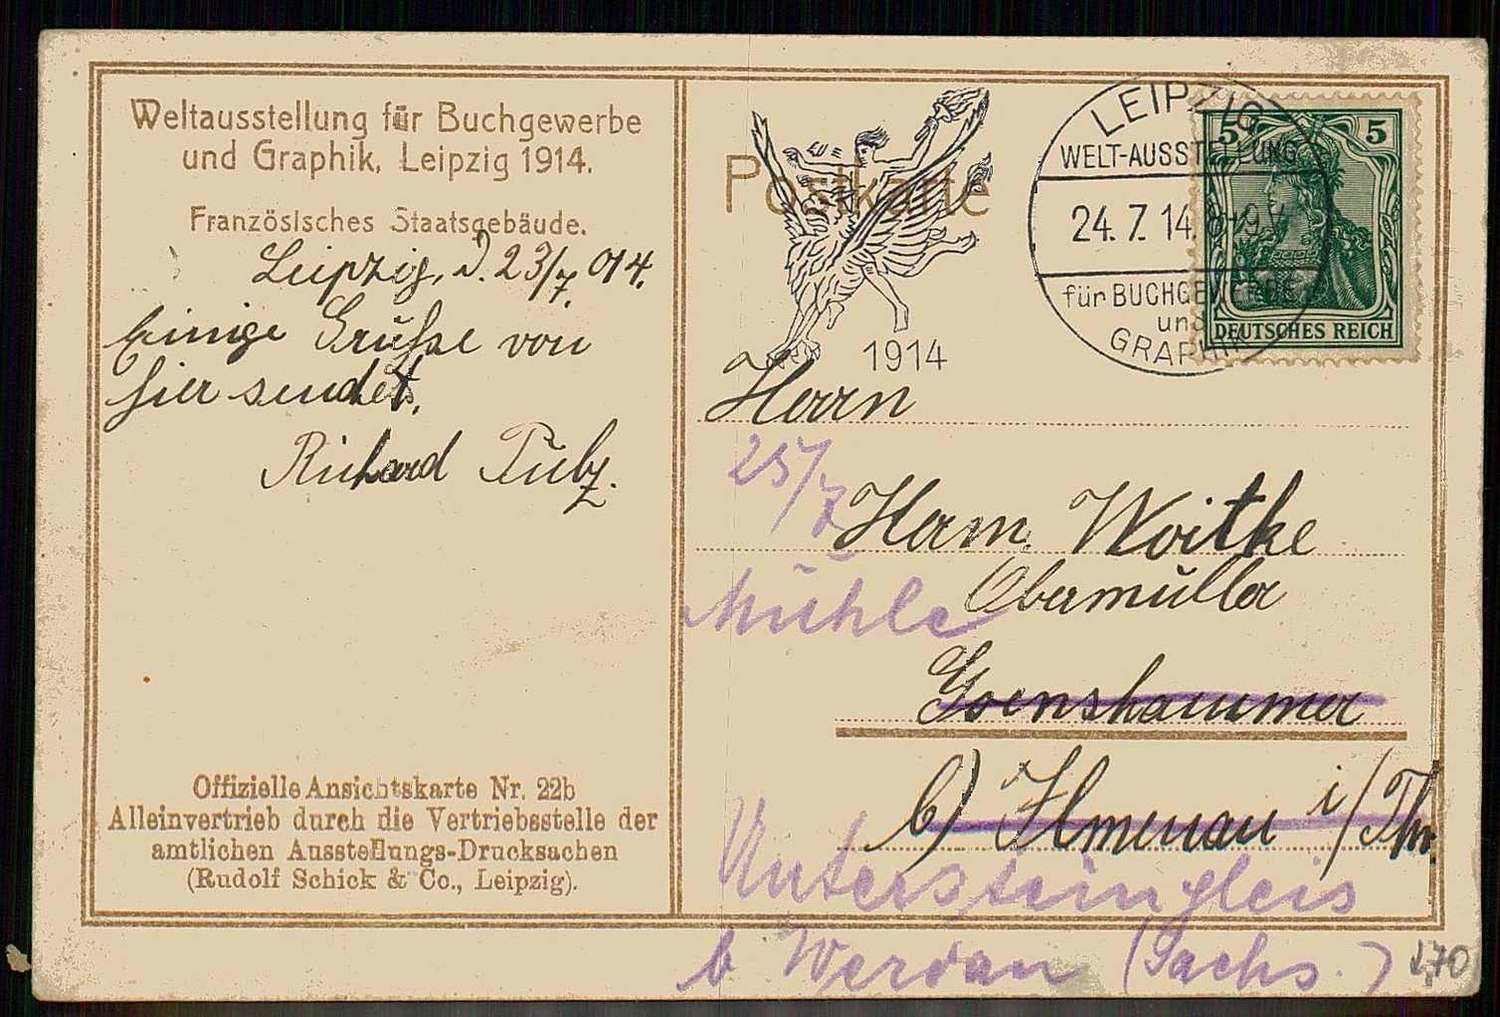 Weltausstellung für Buchgewerbe
und Graphik, Leipzig 1914.
Französisches Staatsgebäude.
Leipzig, d. 23/7. 014.
Einige Grüsse von
hier sendet,
Richard
Offizielle Ansichtskarte Nr. 22b
Alleinvertrieb durch die Vertriebsstelle der
amtlichen Ausstellungs-Drucksachen
(Rudolf Schick & Co., Leipzig).
Postkarte
1914
LEIPZIG
WELT-AUSSTELLUNG
24.7.14. 8-9 V
für BUCHGEWERBE
und
GRAPHIK
5 5
DEUTSCHES REICH
Herrn
25/7
Herm. Woitke
Obermüller
Mühle
b/ Ilmenau i/Thr.
Untersteingleis
b Werdau (Sachs.)
270